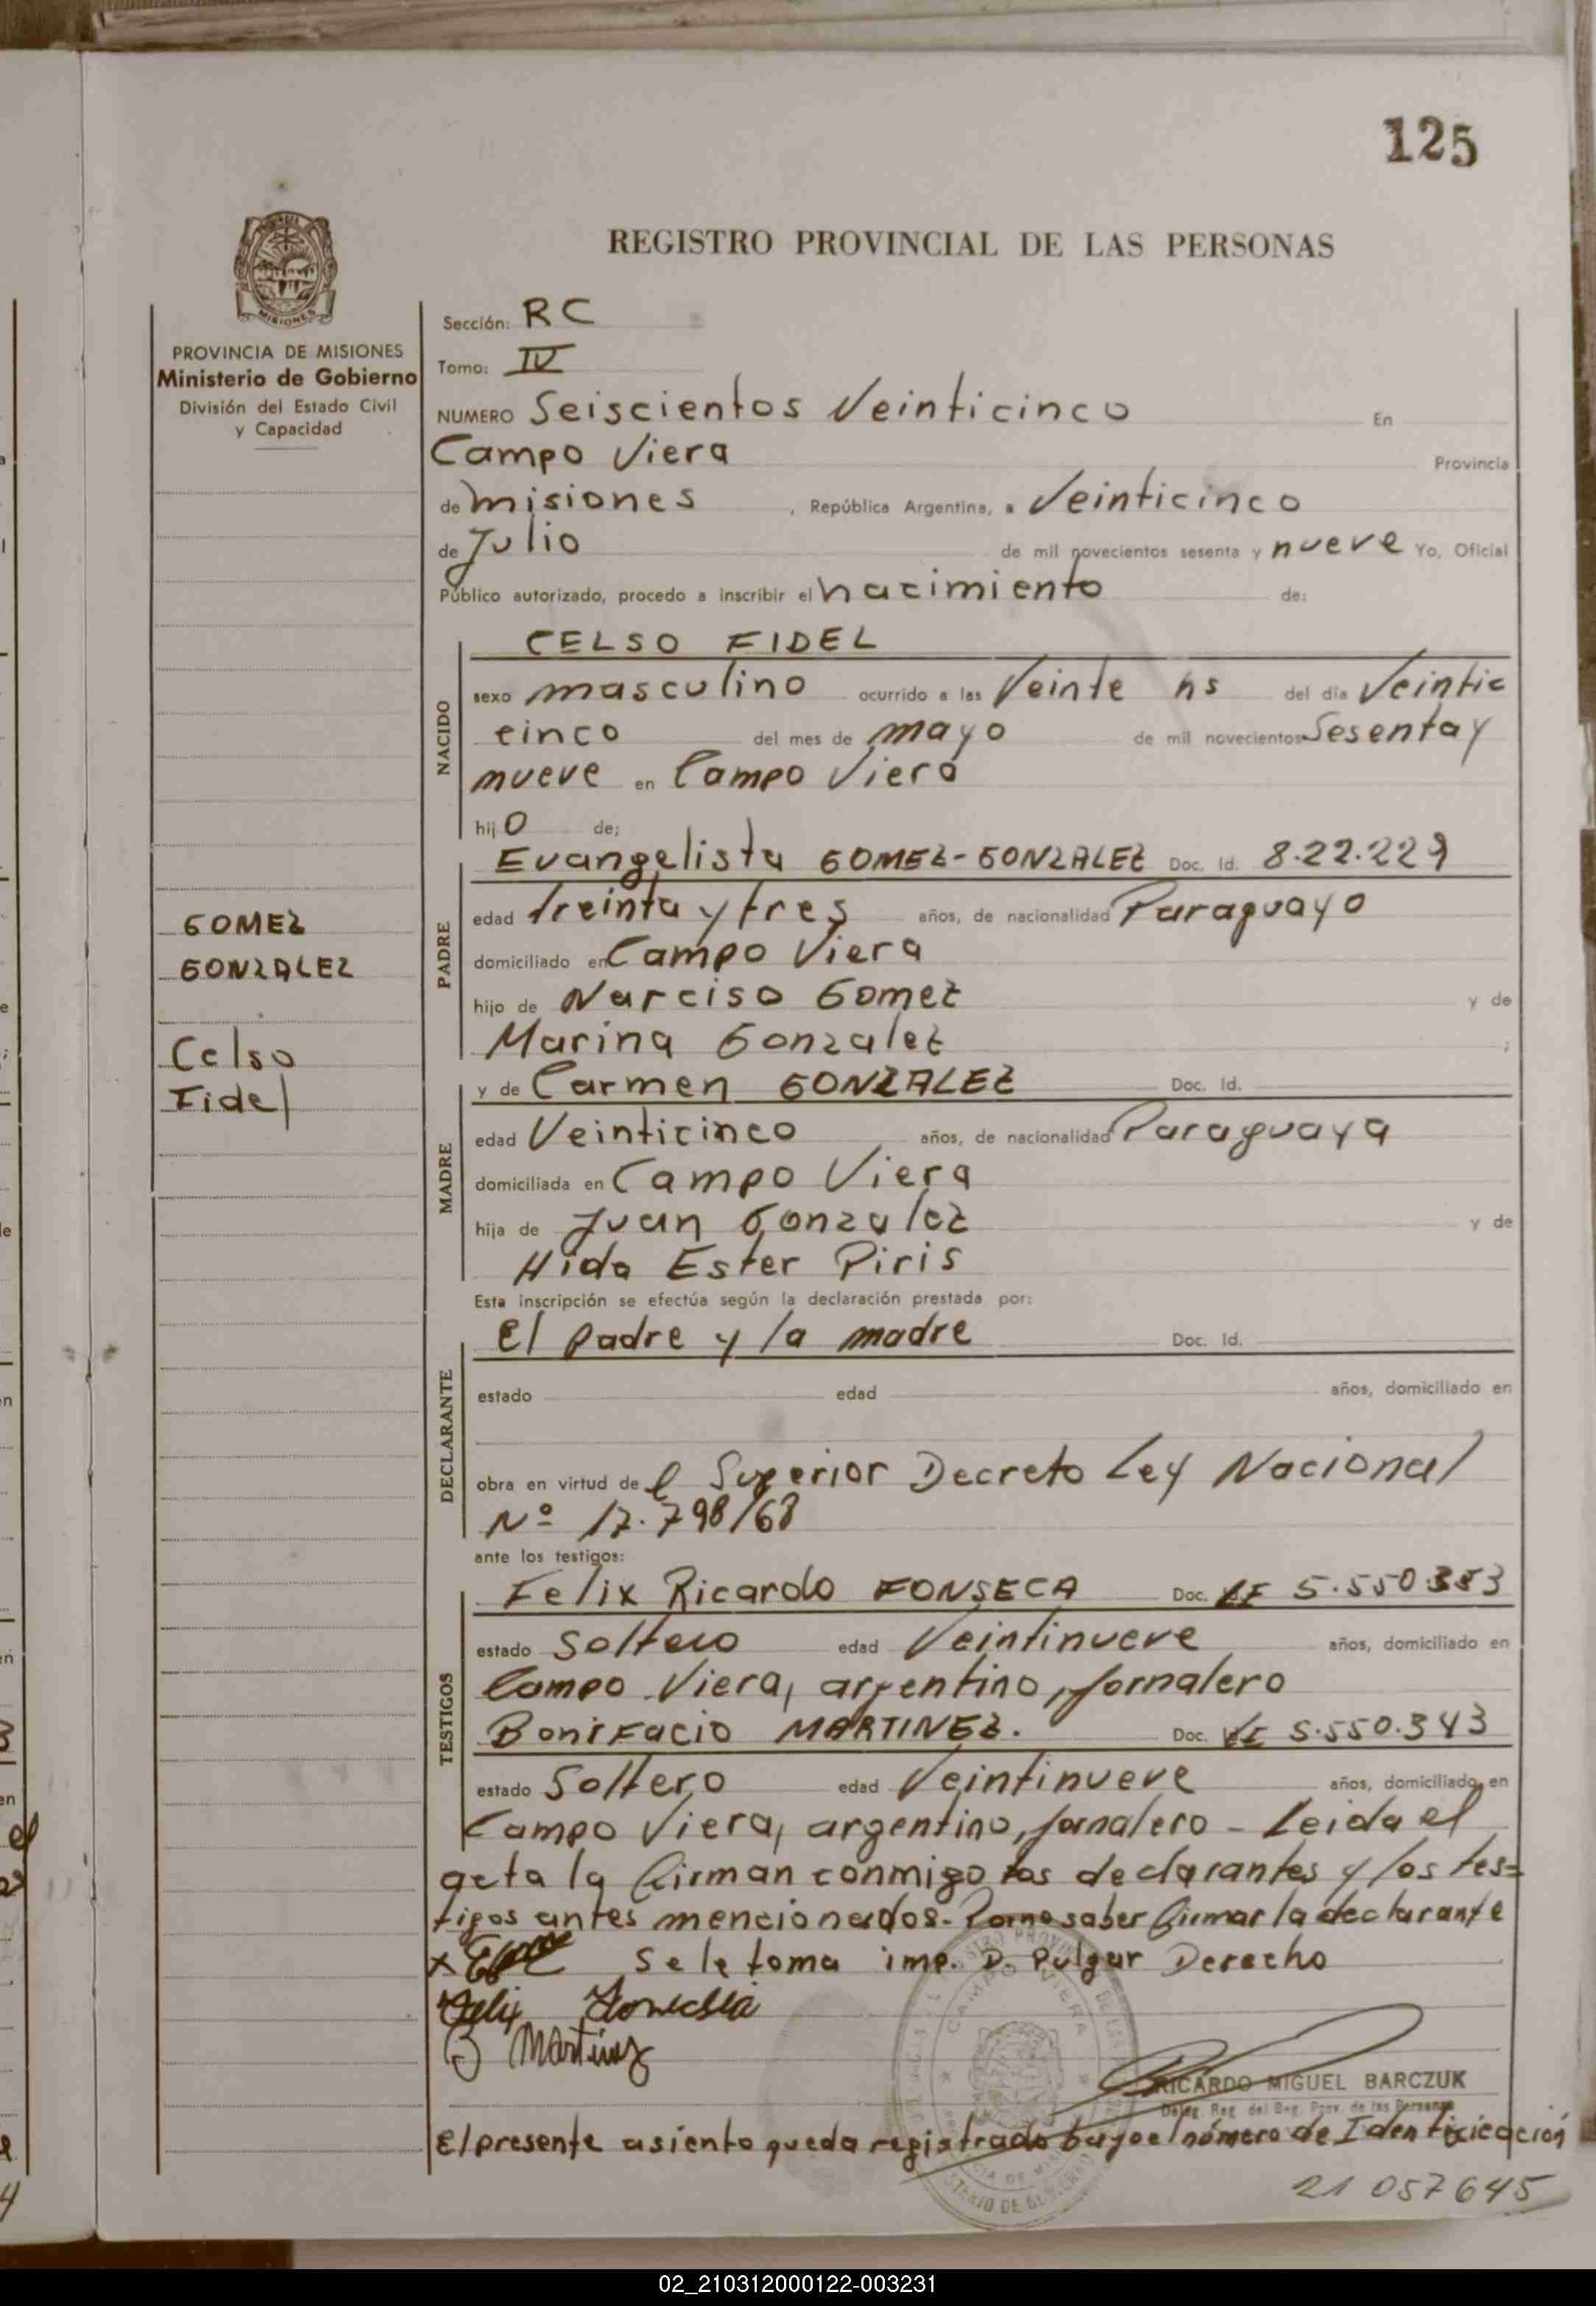 125
REGISTRO PROVINCIAL DE LAS PERSONAS
MISIONES
PROVINCIA DE MISIONES
Ministerio de Gobierno
División del Estado Civil
y Capacidad
GOMEZ
GONZALEZ
Celso
Fidel
Sección: RC
Tomo: IV
NUMERO Seiscientos Veinticinco En
Campo Viera Provincia
de misiones , República Argentina, a Veinticinco
de Julio de mil novecientos sesenta y nueve Yo, Oficial
Público autorizado, procedo a inscribir el nacimiento de:
NACIDO
CELSO FIDEL
sexo masculino ocurrido a las Veinte hs del día Veintic
cinco del mes de mayo de mil novecientos Sesenta y
nueve en Campo Viera
hijo de;
PADRE
Evangelista GOMEZ-GONZALEZ Doc. Id. 8.22.229
edad treinta y tres años, de nacionalidad Paraguayo
domiciliado en Campo Viera
hijo de Narciso Gomez y de
Marina Gonzalez ;
MADRE
y de Carmen GONZALEZ Doc. Id.
edad Veinticinco años, de nacionalidad Paraguaya
domiciliada en Campo Viera
hija de Juan Gonzalez y de
Hida Ester Piris
Esta inscripción se efectúa según la declaración prestada por:
DECLARANTE
El padre y la madre Doc. Id.
estado edad años, domiciliado en
obra en virtud del Superior Decreto Ley Nacional
Nº 17.798/68
ante los testigos:
TESTIGOS
Felix Ricardo FONSECA Doc. LE 5.550.353
estado Soltero edad Veintinueve años, domiciliado en
Campo Viera, argentino, jornalero
Bonifacio MARTINEZ. Doc. LE 5.550.343
estado Soltero edad Veintinueve años, domiciliado en
Campo Viera, argentino, jornalero - Leida el
acta la firman conmigo los declarantes y los tes=
tigos antes mencionados. Por no saber firmar la declarante
x se le toma imp. D. Pulgar Derecho
Felix Fonseca
B Martinez
RICARDO MIGUEL BARCZUK
Deleg. Reg. del Reg. Prov. de las Personas
El presente asiento queda registrado bajo el número de Identificación
21 057645
02_210312000122-003231